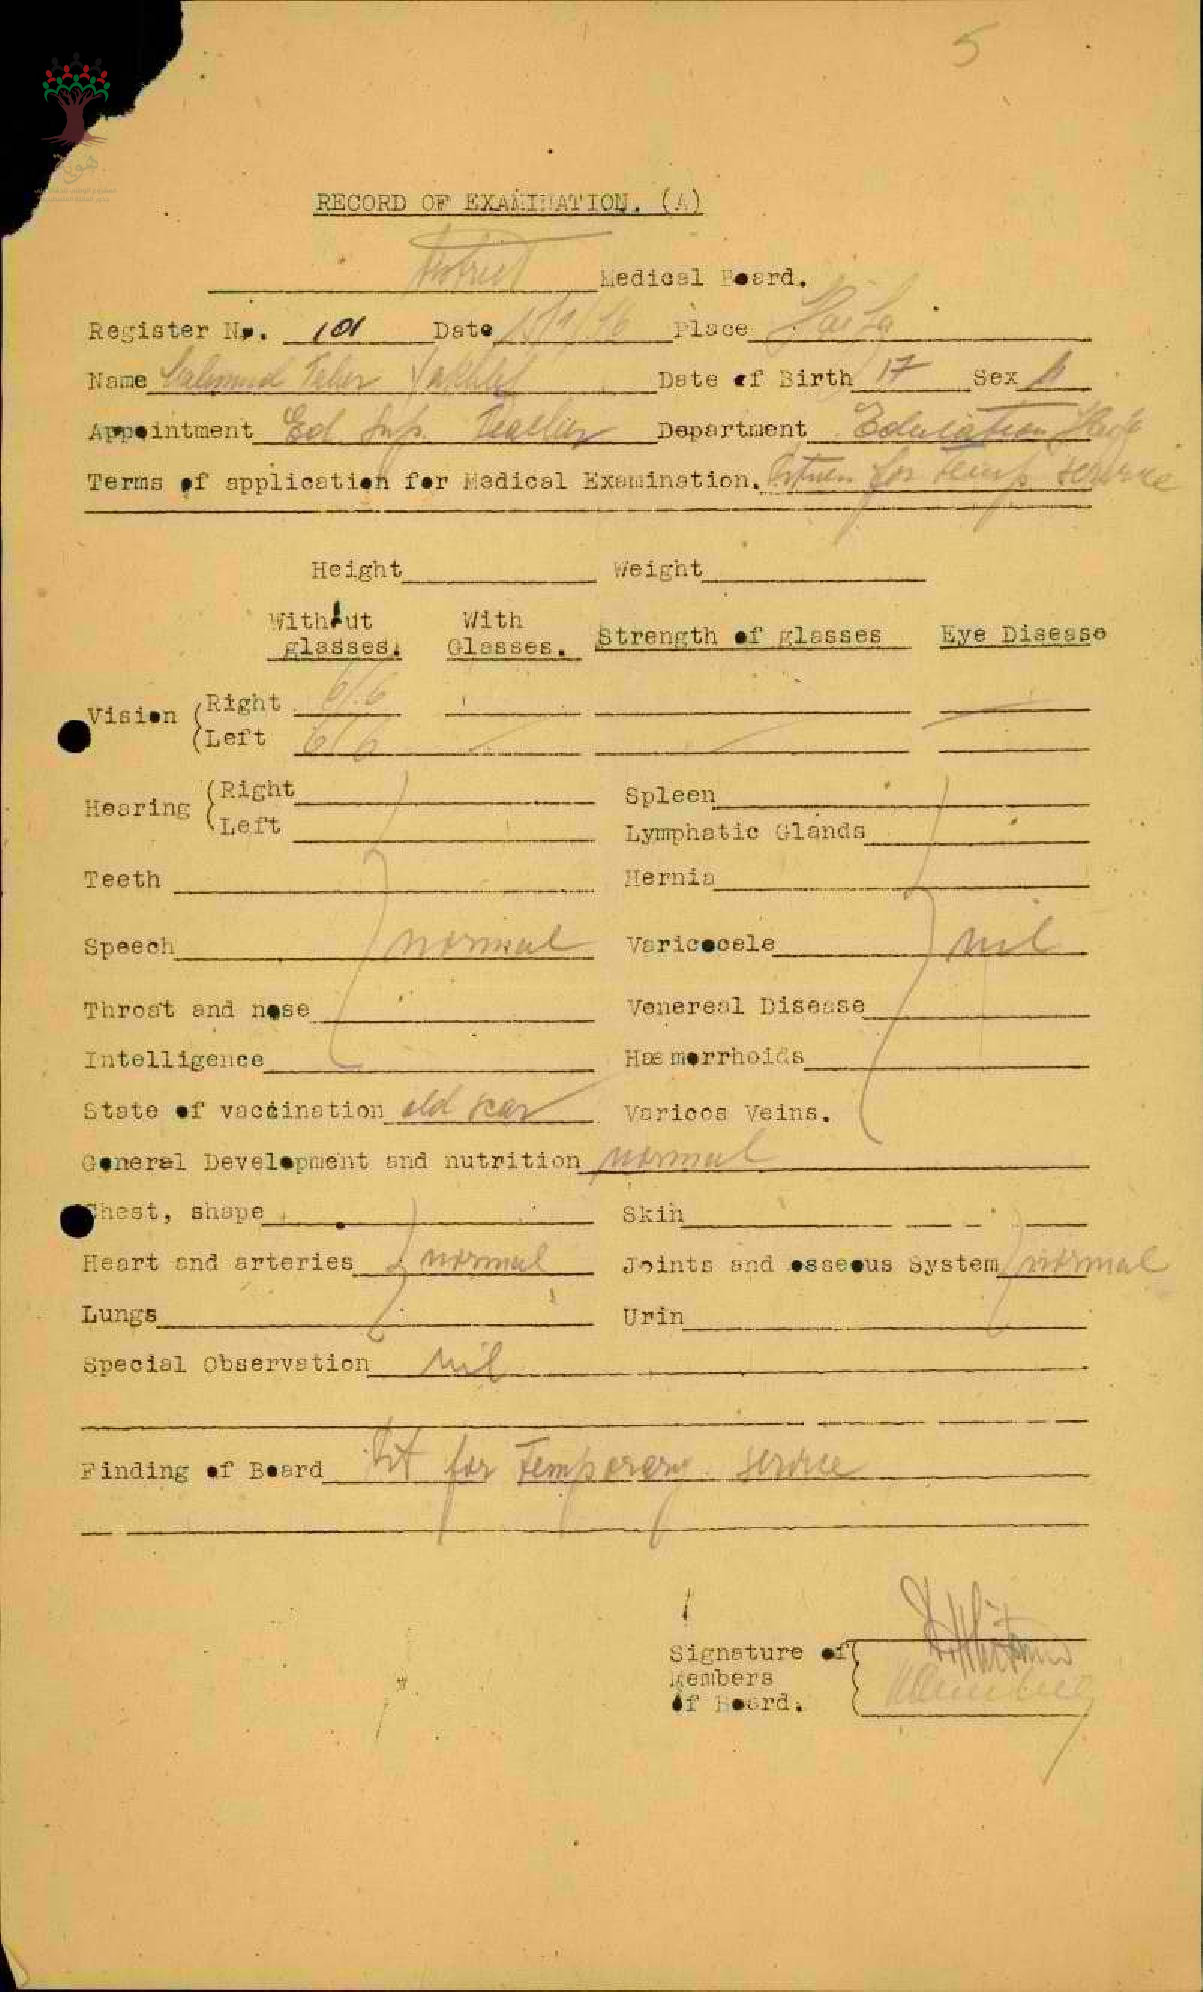 5
هوية
RECORD OF EXAMINATION. (A)
District Medical Board.
Register No. 101 Date Place Haifa
Name Taher Date of Birth 17 Sex
Appointment Ed. Sup. Teacher Department Education Haifa
Terms of application for Medical Examination. for temp service
Height Weight
Without glasses. With Glasses. Strength of glasses Eye Disease
Vision (Right 6/6
(Left 6/6
Hearing (Right Spleen
(Left Lymphatic Glands
Teeth Hernia
Speech normal Varicocele nil
Throat and nose Venereal Disease
Intelligence Haemorrhoids
State of vaccination old scar Varicos Veins.
General Development and nutrition normal
Chest, shape Skin
Heart and arteries normal Joints and osseous System normal
Lungs Urin
Special Observation nil
Finding of Board fit for Temporary service
Signature of
Members
of Board.